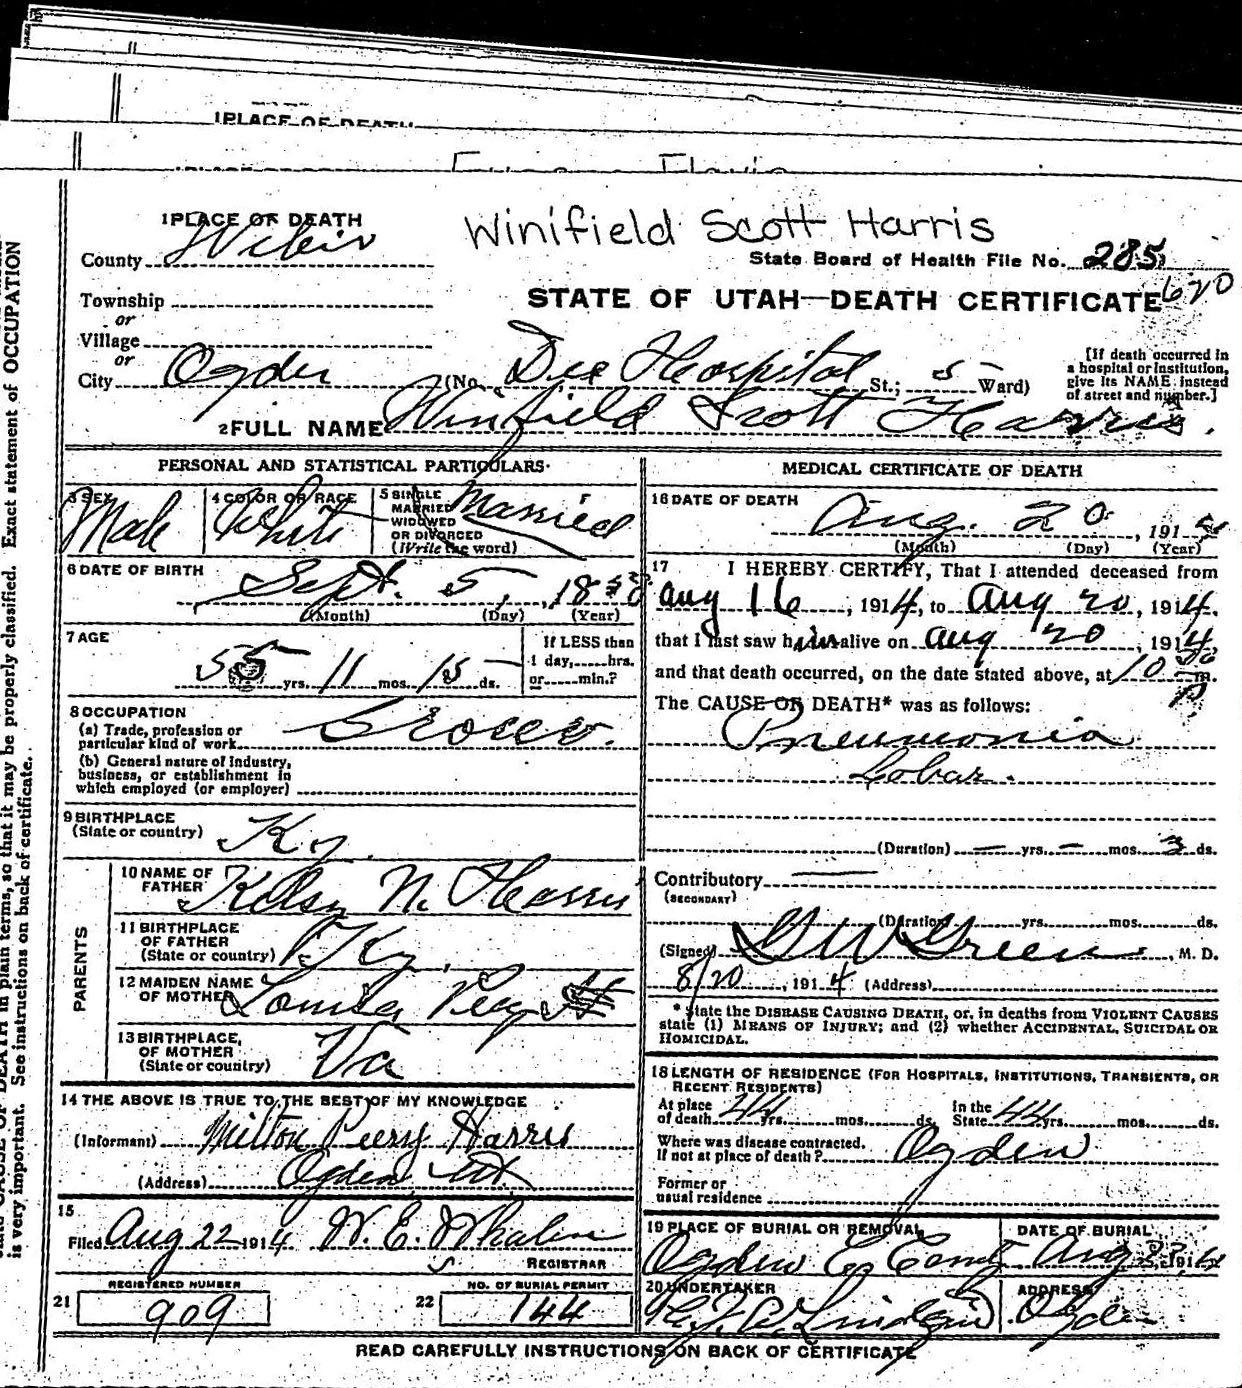 1 PLACE OF DEATH
1 PLACE OF DEATH
Winifield Scott Harris
County Weber
State Board of Health File No. 285
620
Township
STATE OF UTAH—DEATH CERTIFICATE
or
Village
or
City Ogden (No. Dee Hospital St.; 5 Ward)
[If death occurred in
a hospital or institution,
give its NAME instead
of street and number.]
2 FULL NAME Winfield Scott Harris.
PERSONAL AND STATISTICAL PARTICULARS
3 SEX Male
4 COLOR OR RACE White
5 SINGLE
MARRIED
WIDOWED
OR DIVORCED
(Write the word)
Married
6 DATE OF BIRTH
Sept. 5, 18
(Month) (Day) (Year)
7 AGE
55 yrs. 11 mos. 15 ds.
If LESS than
1 day,......hrs.
or......min.?
8 OCCUPATION
(a) Trade, profession or
particular kind of work Grocer.
(b) General nature of industry,
business, or establishment in
which employed (or employer)
9 BIRTHPLACE
(State or country) Ky.
PARENTS
10 NAME OF
FATHER Kelsy N. Harris
11 BIRTHPLACE
OF FATHER
(State or country) Ky.
12 MAIDEN NAME
OF MOTHER Louisa
13 BIRTHPLACE
OF MOTHER
(State or country) Va
14 THE ABOVE IS TRUE TO THE BEST OF MY KNOWLEDGE
(Informant) Milton Peery Harris
(Address) Ogden Ut.
15
Filed Aug 22 1914 W. E. Whalen
REGISTRAR
REGISTERED NUMBER
21 909
NO. OF BURIAL PERMIT
22 144
MEDICAL CERTIFICATE OF DEATH
16 DATE OF DEATH
Aug. 20, 1914
(Month) (Day) (Year)
17 I HEREBY CERTIFY, That I attended deceased from
Aug 16, 1914, to Aug 20, 1914.
that I last saw him alive on Aug 20, 1914
and that death occurred, on the date stated above, at 10 P m.
The CAUSE OF DEATH* was as follows:
Pneumonia
Lobar.
(Duration) — yrs. — mos. 3 ds.
Contributory —
(SECONDARY)
(Duration) yrs. mos. ds.
(Signed) G W Green, M. D.
8/20, 1914 (Address)
* State the DISEASE CAUSING DEATH, or, in deaths from VIOLENT CAUSES
state (1) MEANS OF INJURY; and (2) whether ACCIDENTAL, SUICIDAL OR
HOMICIDAL.
18 LENGTH OF RESIDENCE (FOR HOSPITALS, INSTITUTIONS, TRANSIENTS, OR
RECENT RESIDENTS)
At place
of death 44 yrs. mos. ds.
In the
State 44 yrs. mos. ds.
Where was disease contracted,
If not at place of death? Ogden
Former or
usual residence
19 PLACE OF BURIAL OR REMOVAL
Ogden C Cemt
DATE OF BURIAL
Aug 1914
20 UNDERTAKER
ADDRESS
Ogden
READ CAREFULLY INSTRUCTIONS ON BACK OF CERTIFICATE
CAUSE OF DEATH in plain terms, so that it may be properly classified. Exact statement of OCCUPATION
is very important. See instructions on back of certificate.